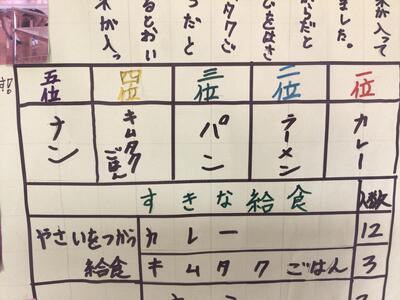 が入って
ました。
らだと
むをはさ
タクご
だと
るとおい
が入っ
す!
一位
カレー
二位
ラーメン
三位
パン
四位
キムタク
ごはん
五位
ナン
すきな給食
人数
やさいをつかう
給食
カレー
12
キムタクごはん
3